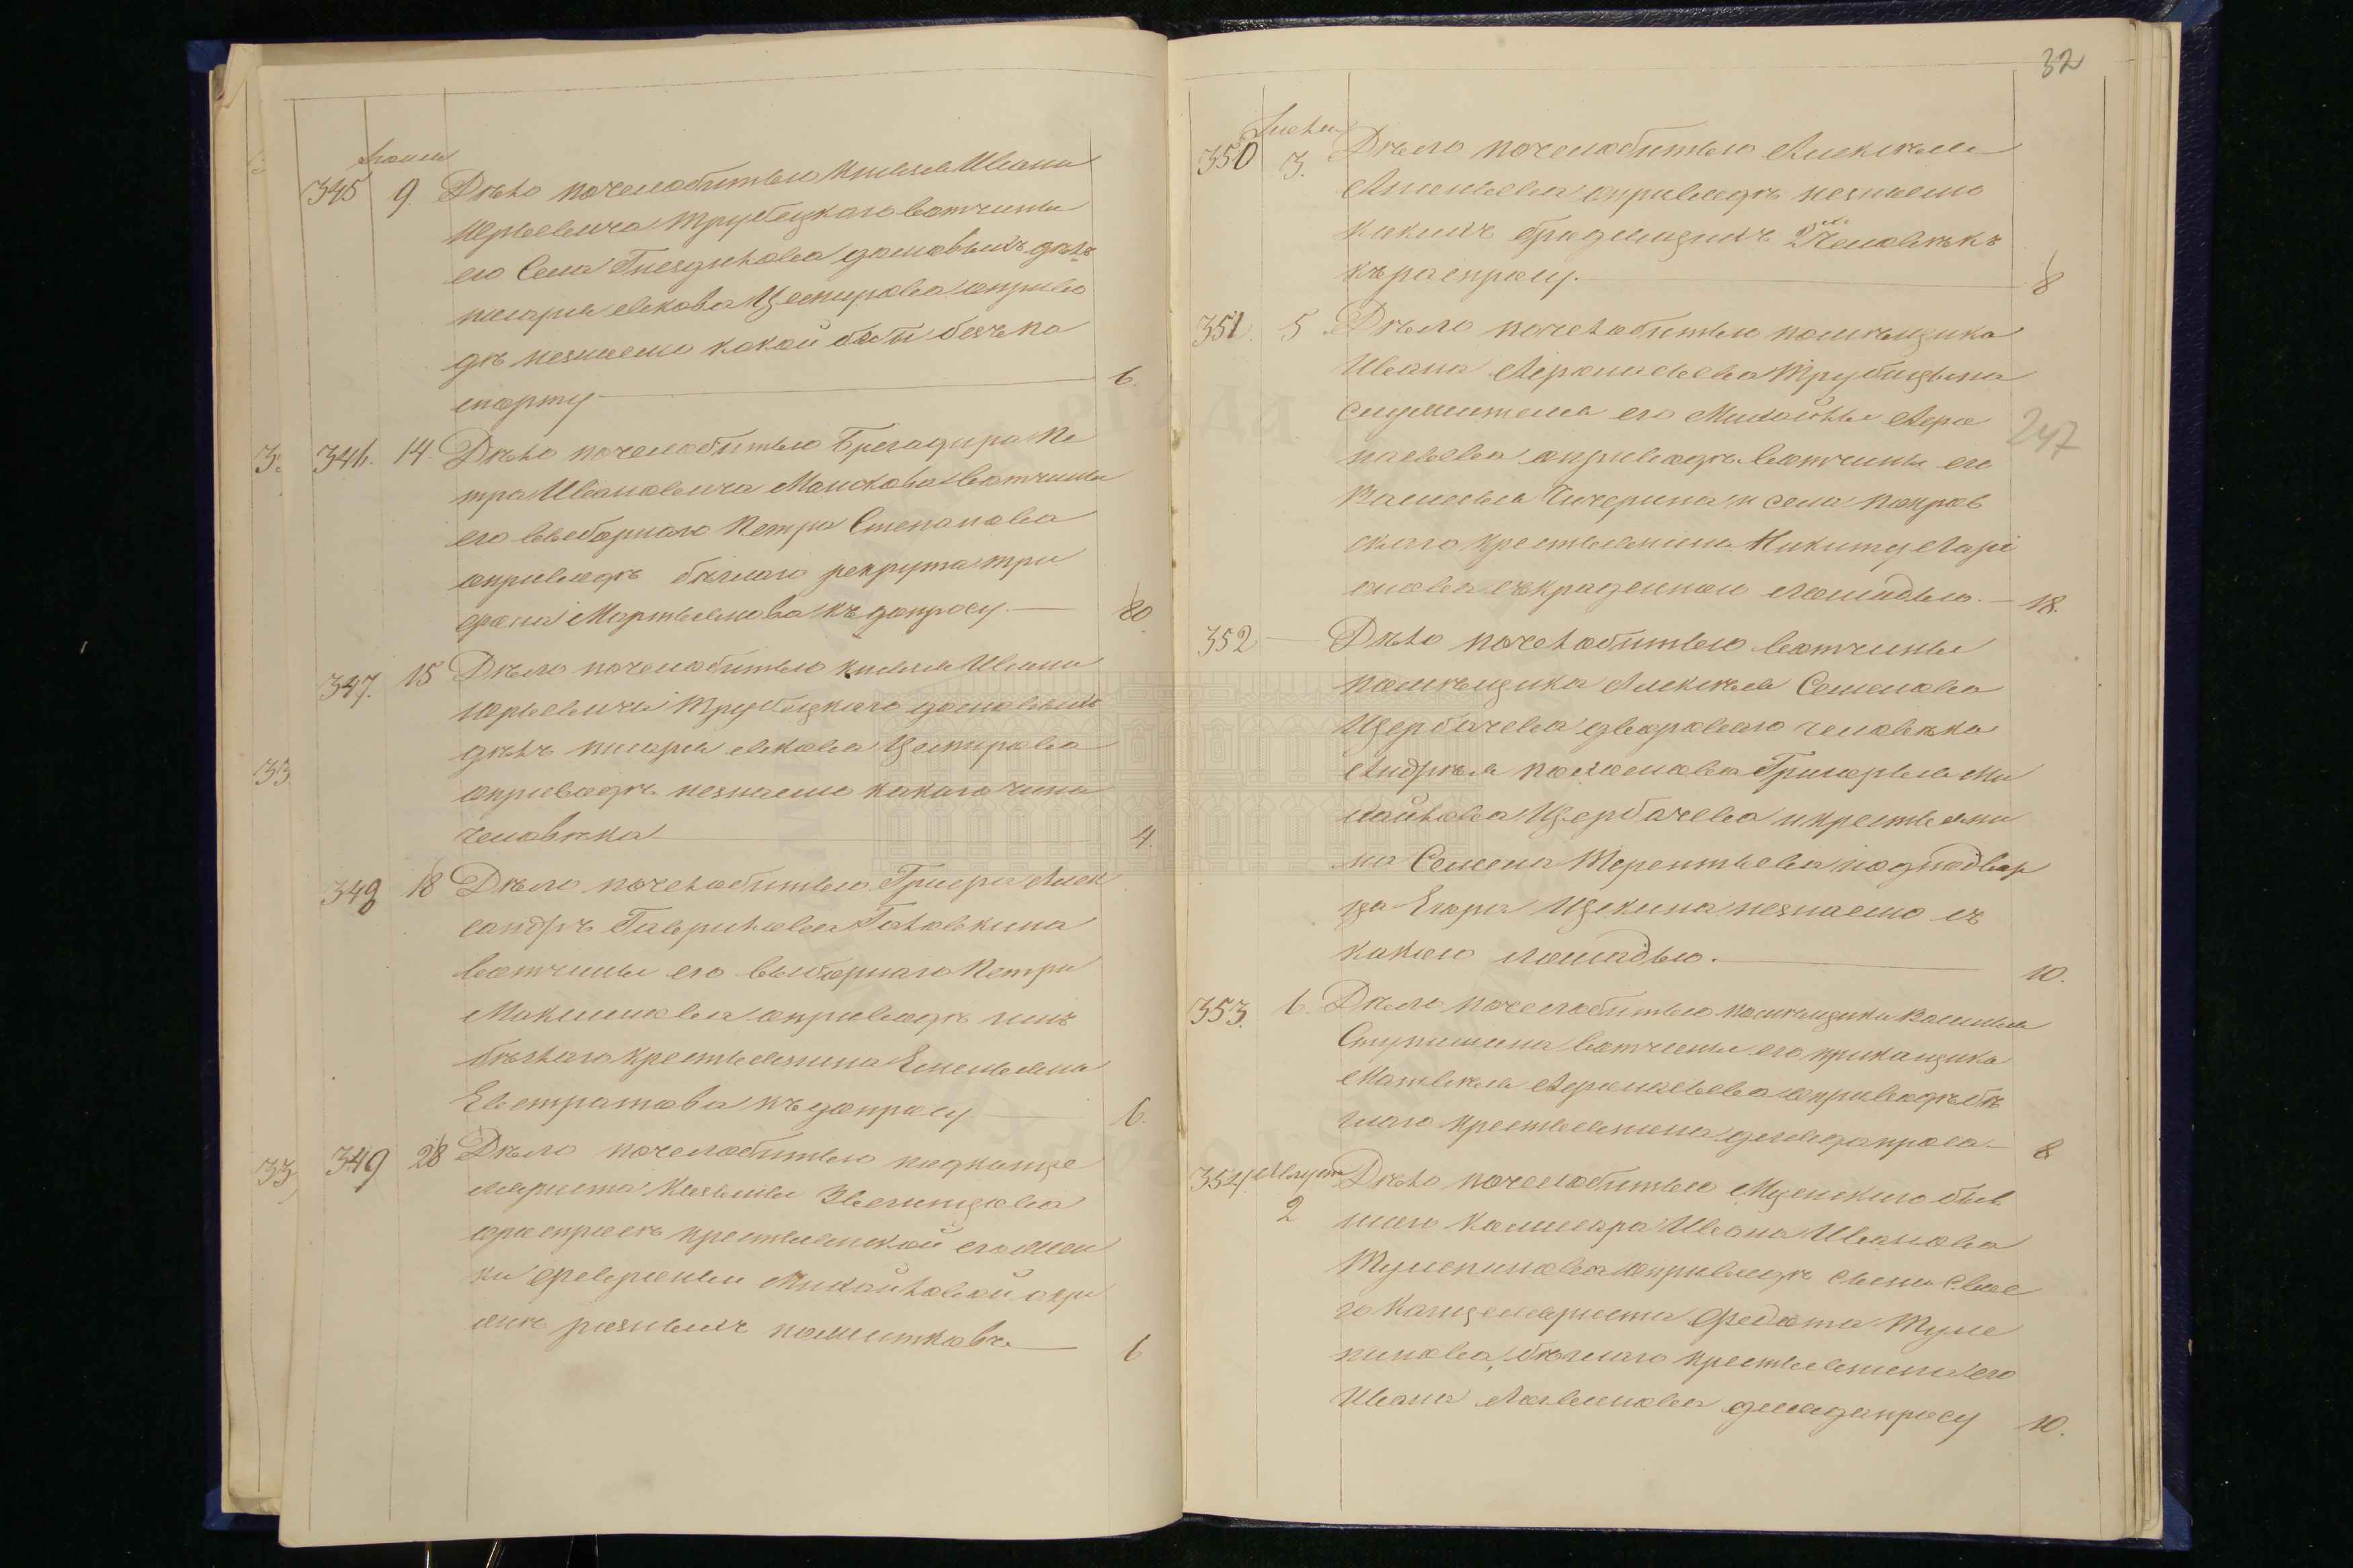 345 9. Дѣло почелобитью Князя Ивана
Юрьевича Трубецкаго вотчины
его Села Гнездилова домовыхъ дѣлъ
писаря Якова Цемирова оприво
дѣ незнаемо какой бабы безъ па
шпорту 6.
346. 14 Дѣло почелобитью Брегадира Пе
тра Ивановича Мошкова вотчины
его выборнаго Петра Степанова
оприводѣ бѣглаго рекрута три
фона Мартынова къ допросу. 80
347. 15 Дѣло почелобитью князя Ивана
Юрьевича Трубецкаго домовыхъ
дѣлъ писаря Якова Цемирова
оприводѣ незнаемо какого чина
человѣка 4.
348 18 Дѣло почелобитью Графа Алек
сандръ Гаврилова Головкина
вотчины его выборнаго Петра
Максимова оприводѣ имъ
бѣглаго крестьянина Емельяна
Евстратова къ допросу 6.
349 28 Дѣло почелобитью подканце
ляриста Козьмы Звегинцова
ораспросѣ крестьянской его жен
ки Февроньи Михайловой окра
жѣ разныхъ пожитковъ 6
32
350 3. Дѣло почелобитью Алексѣя
Ананьева оприводѣ незнаемо
какихъ бродящихъ 2хъ Человѣкъ
къ распросу. 8
351. 5. Дѣло почелобитью помѣщика
Ивана Афонасьева Трубицына
служителя его Михайлы Афо
насьева оприводѣ вотчины его
Василья Чичерина села покров
скаго крестьянина Никиту Ларі
онова съ краденною лошадью. 18.
247
352 Дѣло почелобитью вотчины
помѣщика Алексѣя Семенова
Щербачева двороваго человѣка
Андрѣя пахомова Григорья Ми
хайлова Щербачева и крестьяни
на Семена Терентьева
Егора Щекина незнаемо съ
какою лошадью. 10.
353. 6. Дѣло почелобитью помѣщика Василья
Ступишина вотчины его прикащика
Матвѣя Афонасьева оприводѣ бѣ
глаго крестьянина для допроса. 8
354. Августа 2 Дѣло почелобитью Мценскаго быв
шаго Комисара Ивана Иванова
оприводѣ сына Свое
го Канцеляриста Федота
бѣглаго крестьянина его
Ивана для допросу 10.